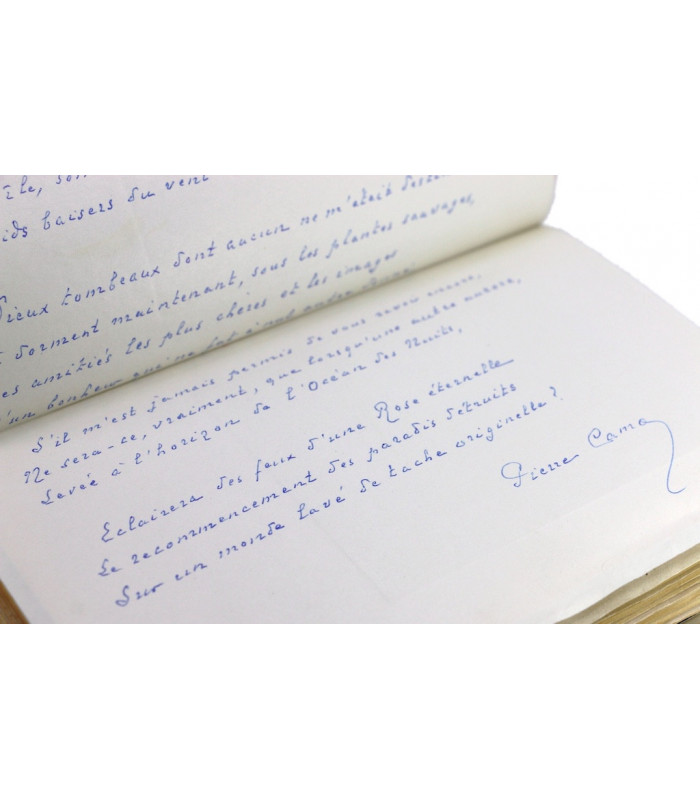 île,
baisers du vent
Vieux tombeaux dont aucun ne m'était
dorment maintenant, sous les plantes sauvages,
amitiés les plus chères et les images
bonheur qui ne fut
S'il m'est jamais permis de vous revoir encore,
Ne sera-ce, vraiment, que lorsqu'une autre aurore,
Levée à l'horizon de l'Océan des Nuits,
Eclairera des feux d'une Rose éternelle
Le recommencement des paradis détruits
Sur un monde lavé de tache originelle?
Pierre Camo